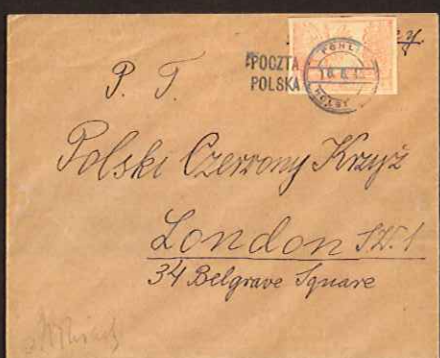 POCZTA
POLSKA
P. T.
Polski Czerwony Krzyż
London S.W.1
34 Belgrave Square